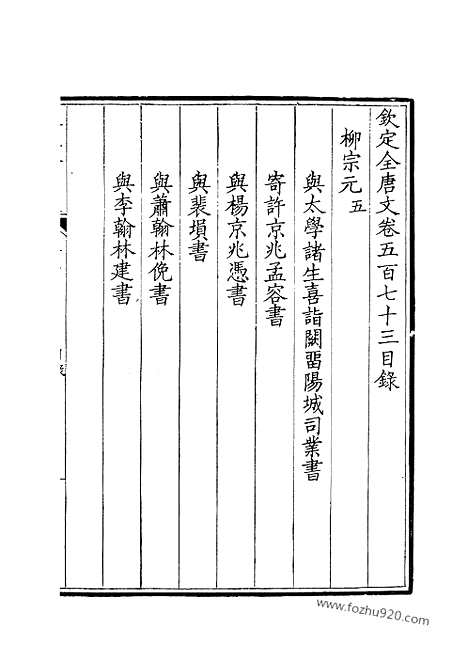 欽定全唐文卷五百七十三目錄
柳宗元五
與太學諸生喜詣闕畱陽城司業書
寄許京兆孟容書
與楊京兆憑書
與裴塤書
與蕭翰林俛書
與李翰林建書
www.fozhu920.com